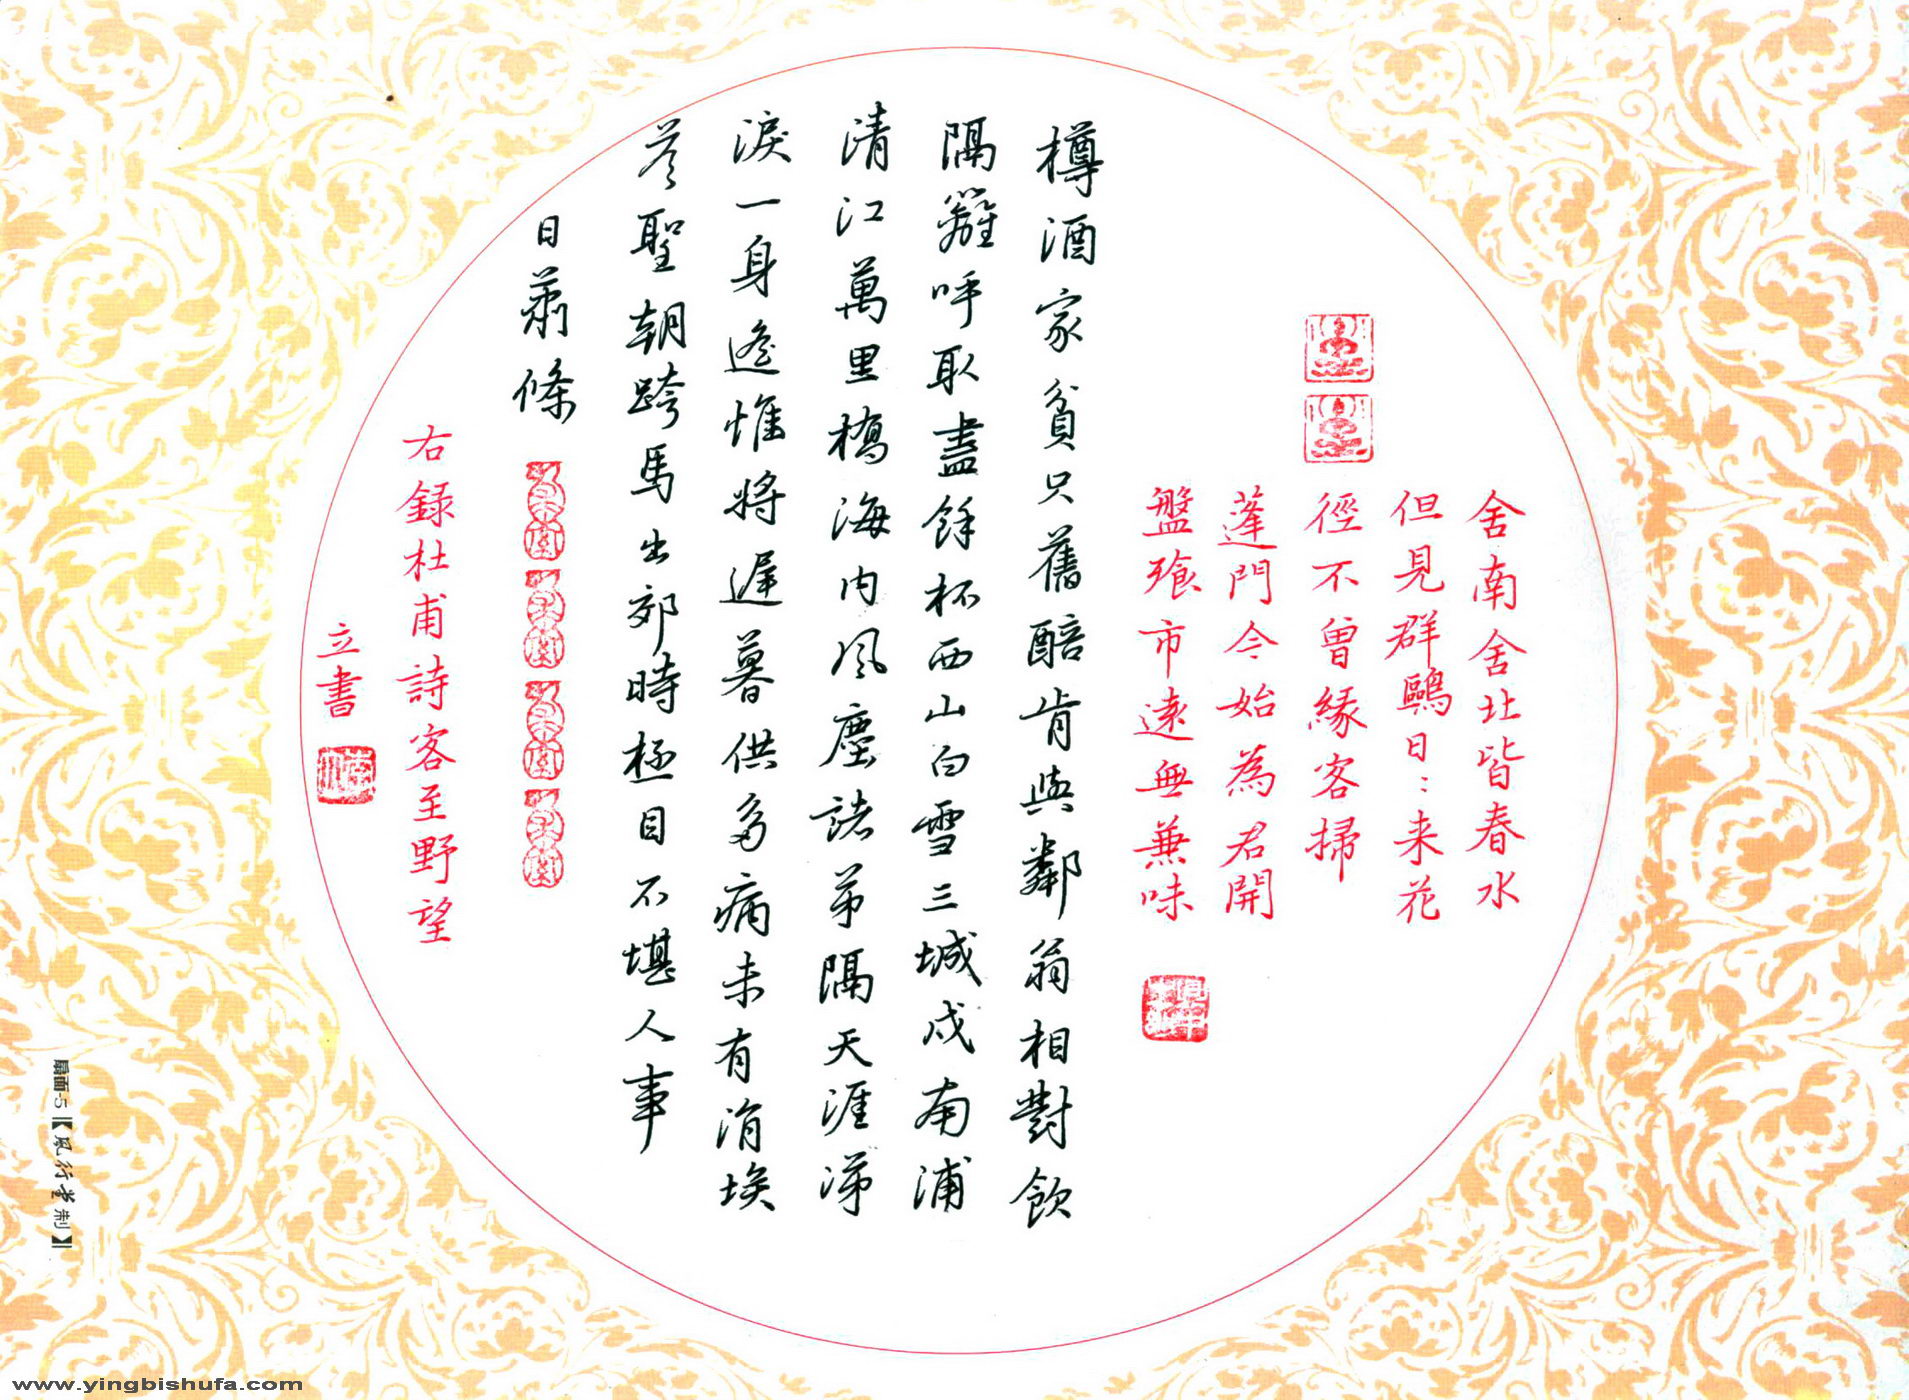 舍南舍北皆春水
但見群鷗日：来花
徑不曾緣客掃
蓬門今始為君開
盤飱市遠無兼味
樽酒家貧只舊醅肯與鄰翁相對飲
隔籬呼取盡餘杯西山白雪三城戍南浦
清江萬里橋海内風塵諸弟隔天涯涕
淚一身遙惟將遲暮供多病未有涓埃
荅聖朝跨馬出郊時極目不堪人事
日蕭條
右録杜甫詩客至野望
立書
扇面-5【風行堂制】
www.yingbishufa.com